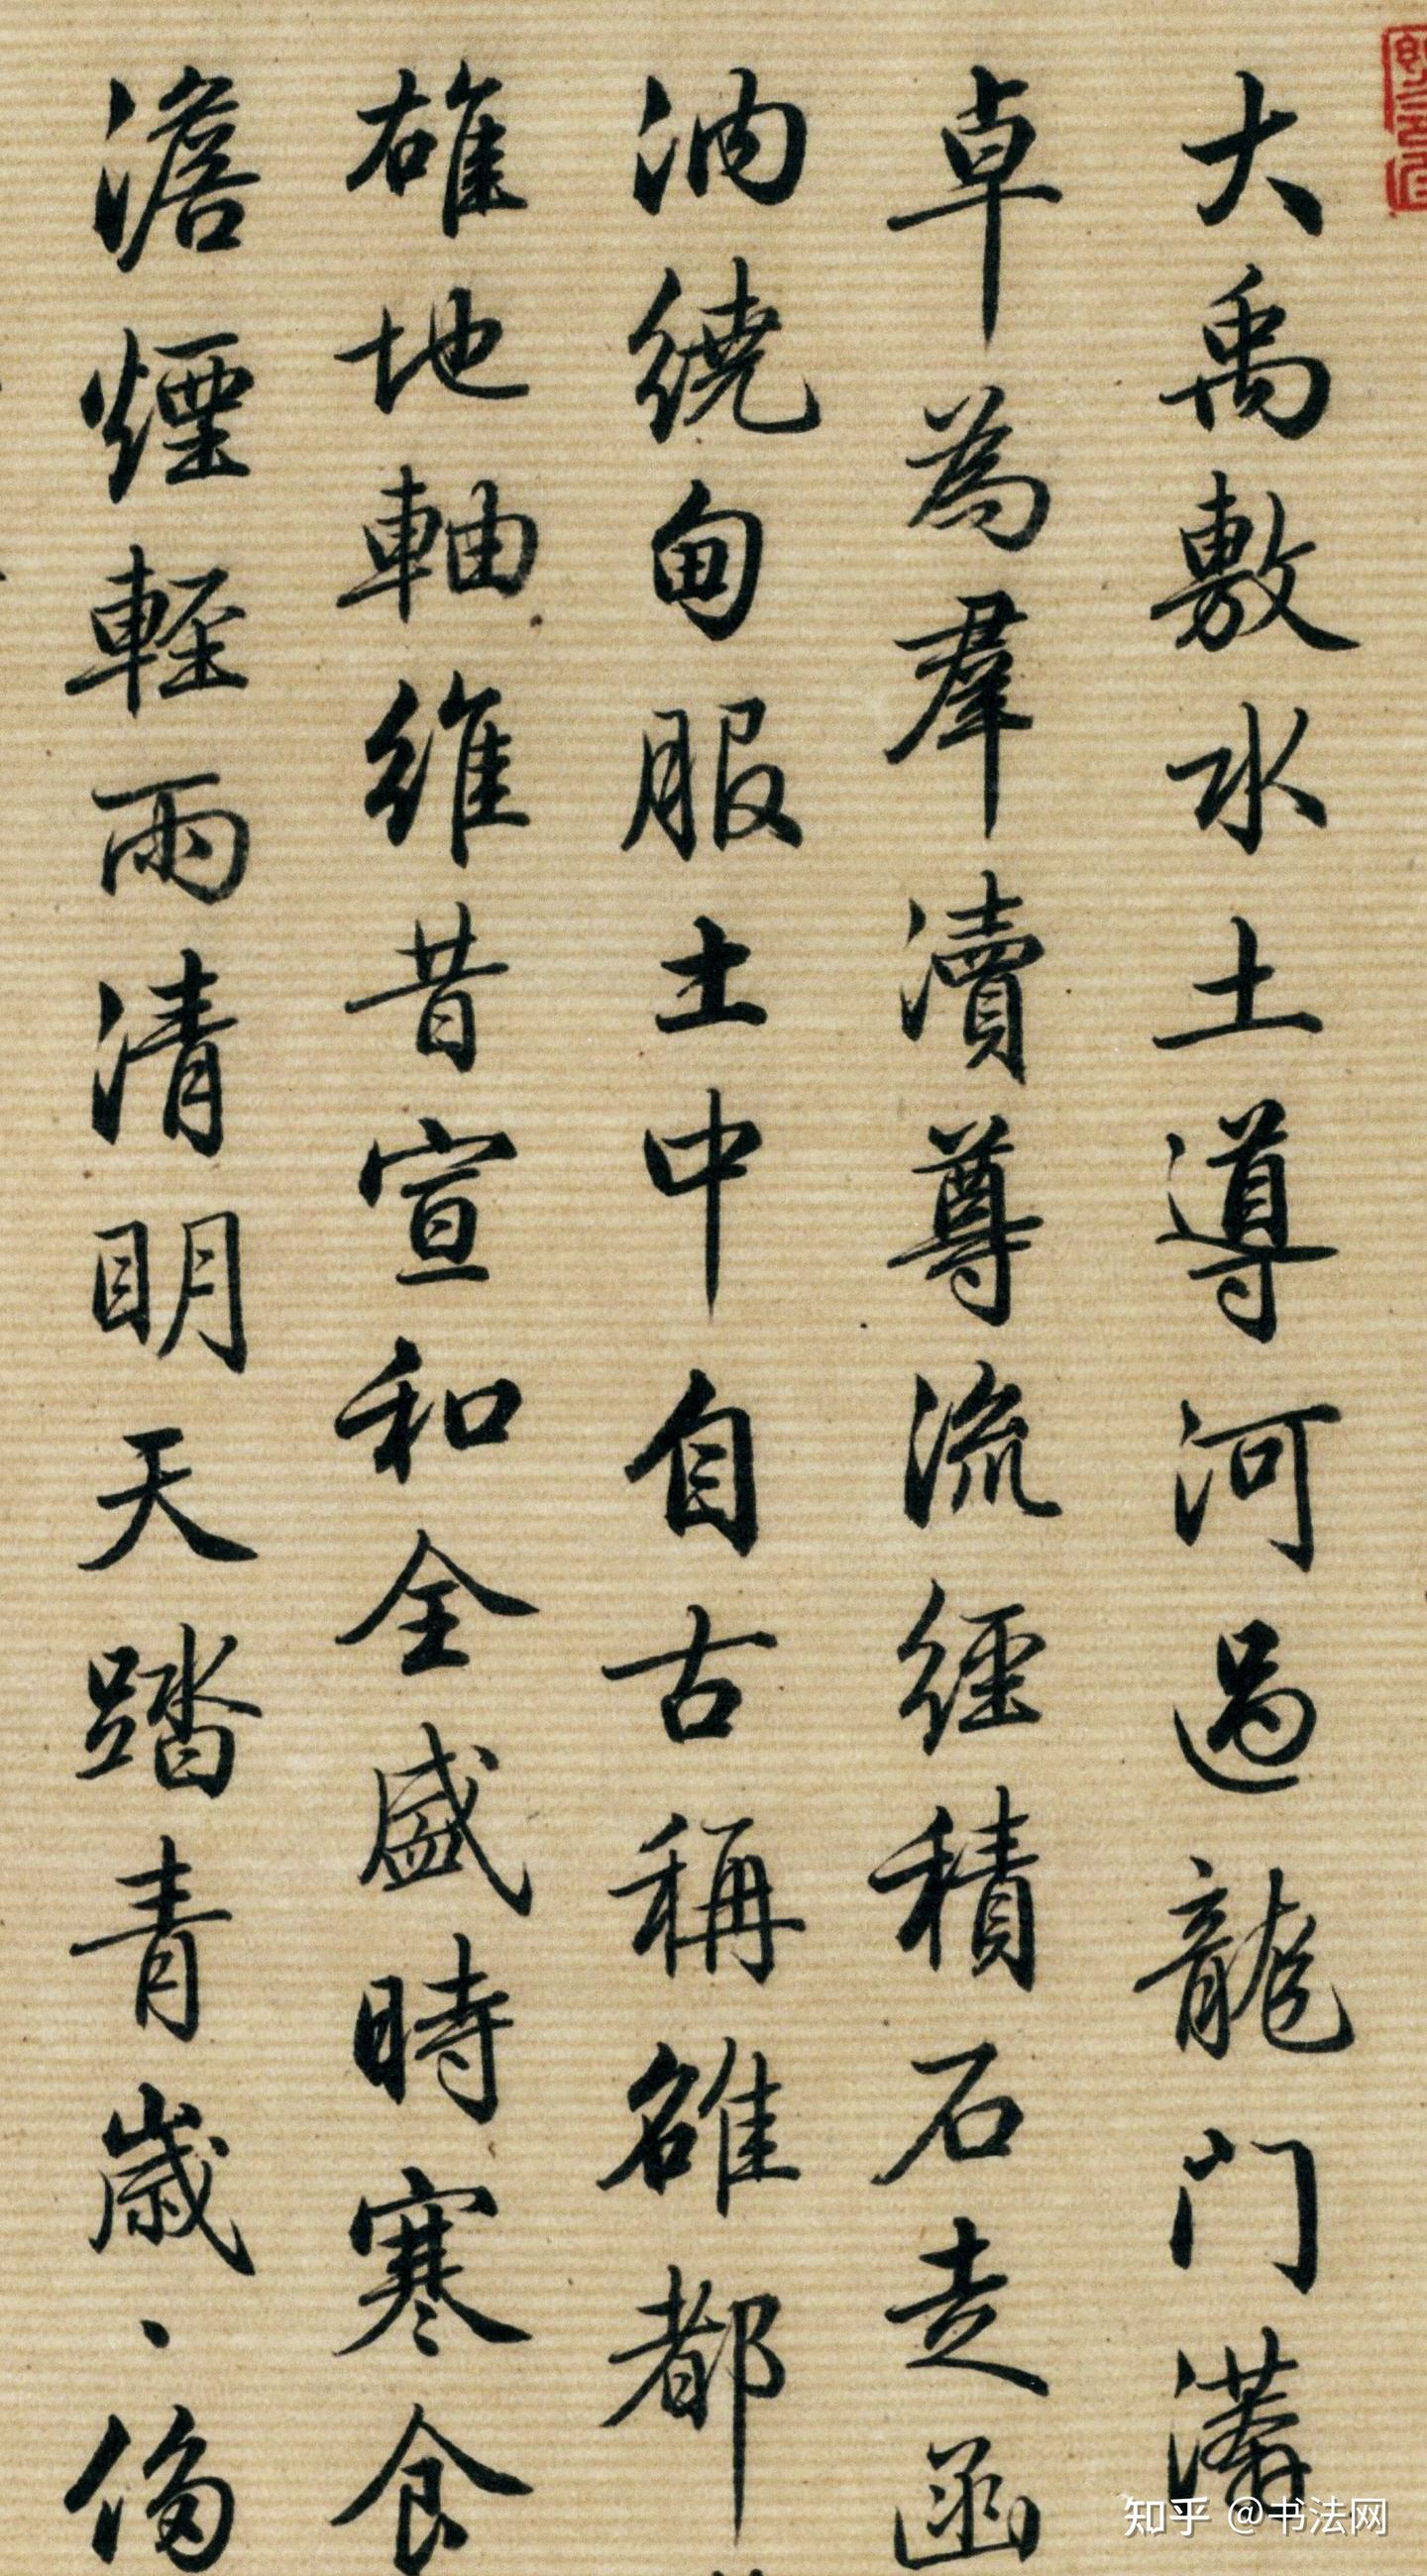 大禹敷水土導河過龍門溝
卓為羣瀆尊流經積石走函
汭繞甸服土中自古稱雒都
雄地軸維昔宣和全盛時寒食
澹煙輕雨清明天踏青歲、侈
知乎 @书法网